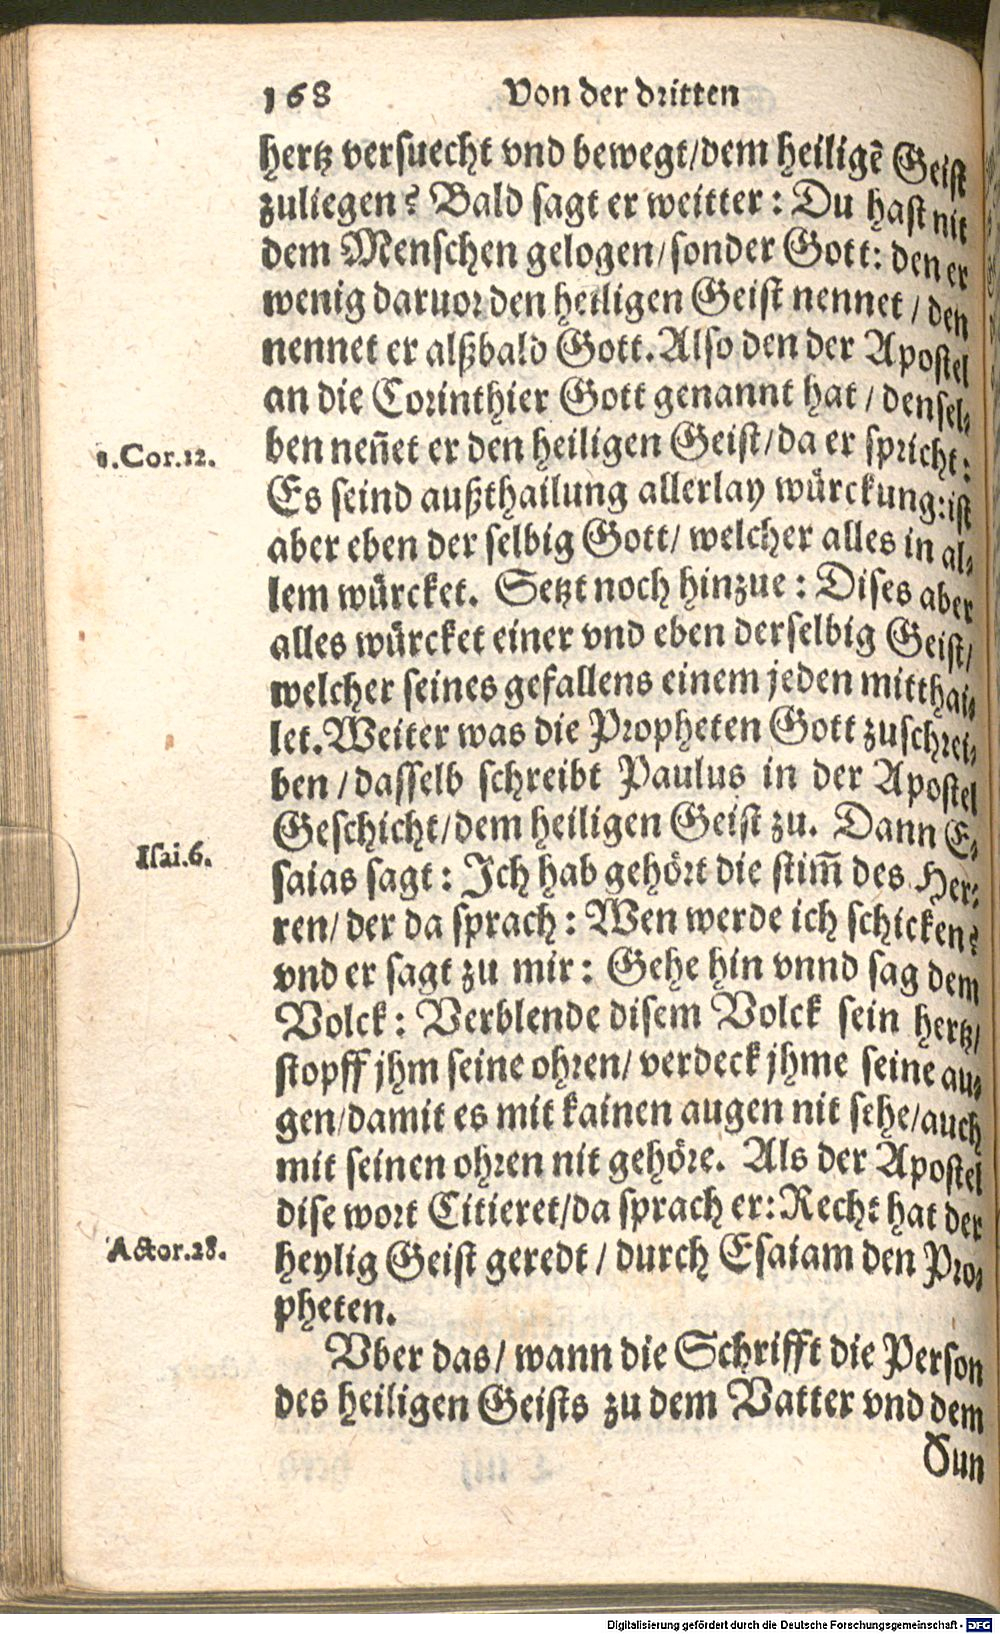 168 Von der dritten
hertz versuecht vnd bewegt/dem heiligē Geist
zuliegen? Bald sagt er weitter: Du hast nit
dem Menschen gelogen/sonder Gott: den er
wenig daruor den heiligen Geist nennet / den
nennet er alßbald Gott. Also den der Apostel
an die Corinthier Gott genannt hat / densel⸗
1.Cor.12.
ben neñet er den heiligen Geist/da er spricht:
Es seind außthailung allerlay würckung: ist
aber eben der selbig Gott/ welcher alles in al⸗
lem würcket. Setzt noch hinzue: Dises aber
alles würcket einer vnd eben derselbig Geist/
welcher seines gefallens einem jeden mitthai⸗
let. Weiter was die Propheten Gott zuschrei⸗
ben / dasselb schreibt Paulus in der Apostel
Geschicht/dem heiligen Geist zu. Dann E⸗
Isai.6.
saias sagt: Ich hab gehört die stim̃ des Her⸗
ren/ der da sprach: Wen werde ich schicken?
vnd er sagt zu mir: Gehe hin vnnd sag dem
Volck: Verblende disem Volck sein hertz/
stopff jhm seine ohren/ verdeck jhme seine au⸗
gen/damit es mit kainen augen nit sehe/auch
mit seinen ohren nit gehöre. Als der Apostel
dise wort Citieret/da sprach er: Recht hat der
Actor.28.
heylig Geist geredt / durch Esaiam den Pro⸗
pheten.
Vber das/ wann die Schrifft die Person
des heiligen Geists zu dem Vatter vnd dem
Sun
Digitalisierung gefördert durch die Deutsche Forschungsgemeinschaft - DFG